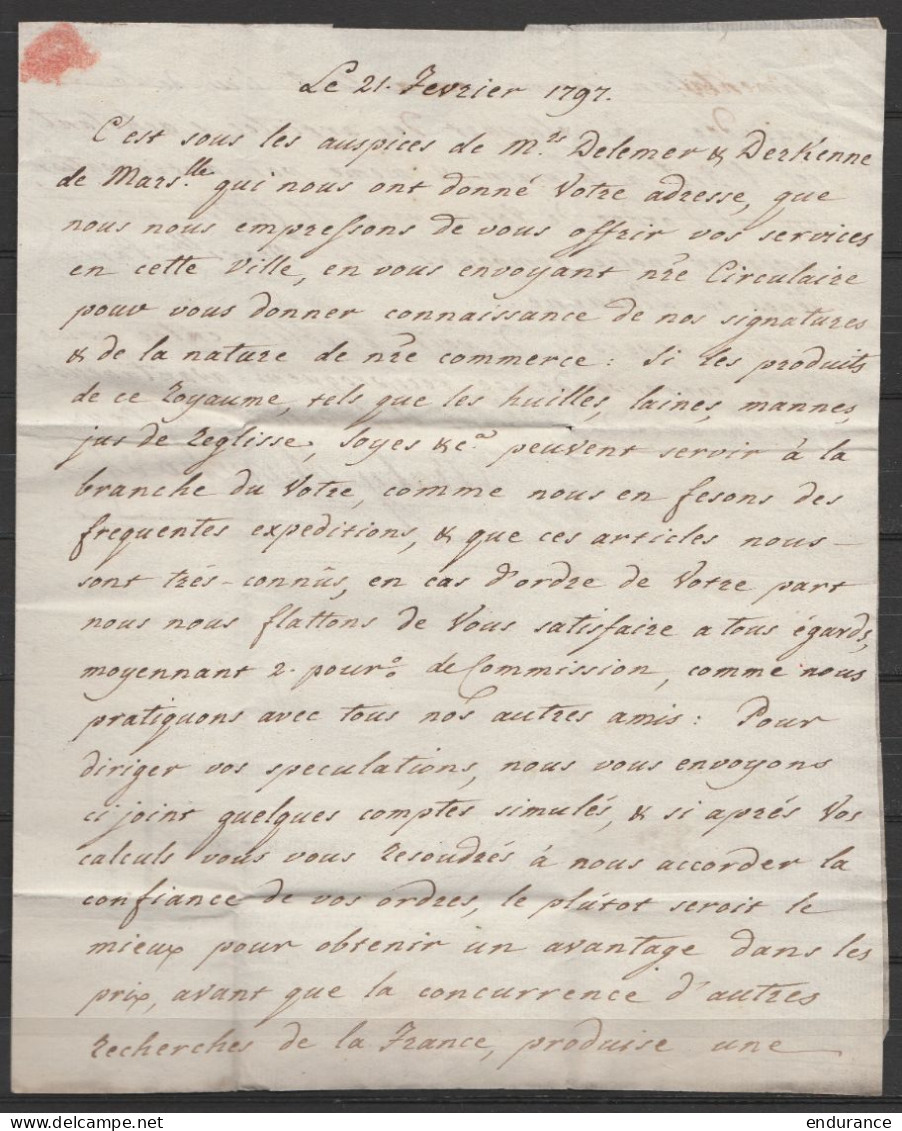 Le 21. Fevrier 1797.
C'est sous les auspices de M.rs Delemer & Derkenne
de Mars.lle qui nous ont donné Votre adresse, que
nous nous empressons de vous offrir vos services
en cette Ville, en vous envoyant nre Circulaire
pour vous donner connaissance de nos signatures
& de la nature de nre commerce : Si les produits
de ce Royaume, tels que les huilles, laines, mannes,
jus de Reglisse, Soyes &c.a peuvent servir à la
branche du Votre, comme nous en fesons des
frequentes expeditions, & que ces articles nous
sont trés-connûs, en cas d'ordre de Votre part
nous nous flattons de Vous satisfaire a tous égards,
moyennant 2. pour % de Commission, comme nous
pratiquons avec tous nos autres amis : Pour
diriger vos speculations, nous vous envoyons
ci joint quelques comptes simulés, & si aprés Vos
calculs vous vous resoudrés à nous accorder la
confiance de vos ordres, le plûtot seroit le
mieux pour obtenir un avantage dans les
prix, avant que la concurrence d'autres
recherches de la France, produise une
delcampe.net
endurance